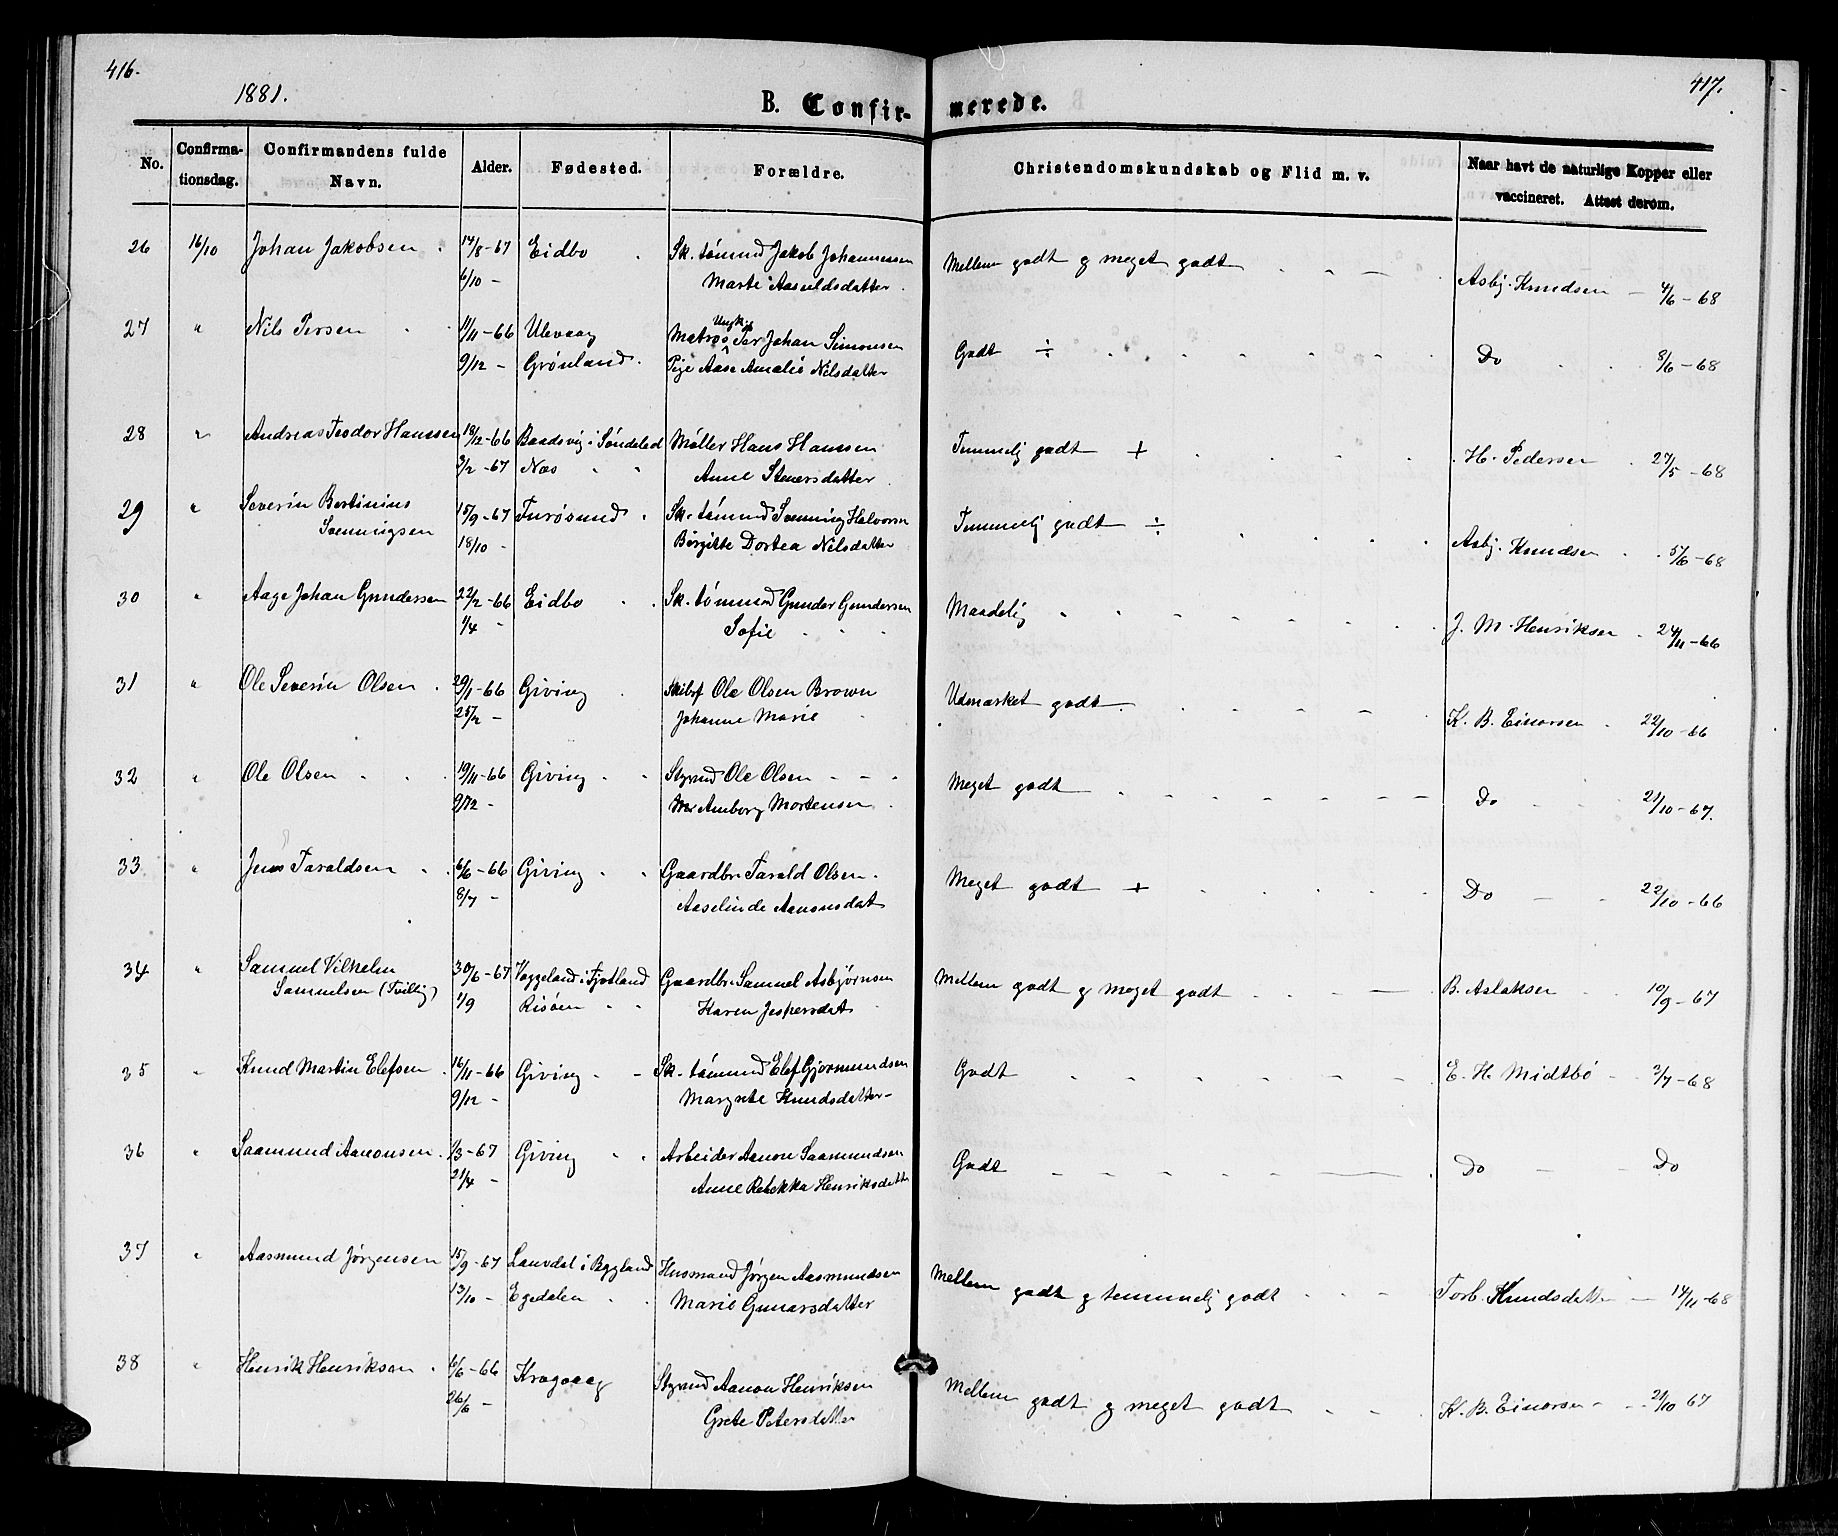 416.
417.
1881.
B. Confirmerede.
No. Confirmationsdag. Confirmandens fulde Navn. Alder. Fødested. Forældre. Christendomskundskab og Flid m. v. Naar havt de naturlige Kopper eller vaccineret. Attest derom.
26 16/10 Johan Jakobsen 14/8-67 Eidbo Sk. tömmd Jakob Johannessen Mellem godt og meget godt Asbj. Knudsen 4/6-68
6/10 - Marte Aasuldsdatter
27 " Nils Persen 11/11-66 Ulevaag Matros Ungk. Per Johan Simonsen Godt ÷ Do 8/6-68
9/12 - Grönland Pige Aase Amalie Nilsdatter
28 " Andreas Teodor Hanssen 18/12-66 Baadsvig i Söndeled Möller Hans Hanssen Temmelig godt + H. Pedersen 27/5-68
3/2-67 Næs Anne Steuersdatter
29 " Severin Bertinius 15/9-67 Furösund Sk. tömmd Svenning Halvorsen Temmelig godt ÷ Asbj. Knudsen 5/6-68
Svenningsen 18/10 - Birgitte Dortea Nilsdatter
30 " Aage Johan Gundersen 22/2-66 Eidbo Sk. tömmd Gunder Gundersen Maadelig J. M. Henriksen 24/11-66
1/4 - Sofie
31 " Ole Severin Olsen 29/1-66 Giving Skibsf Ole Olsen Brown Udmærket godt K. B. Einarsen 22/10-66
25/2 - Johanne Marie
32 " Ole Olsen 19/11-66 Giving Styrmd Ole Olsen Meget godt Do 21/10-67.
9/12 - Amborg Mortensen
33 " Jens Taraldsen 6/6-66 Giving Gaardbr. Tarald Olsen Meget godt + Do 22/10-66
8/7 - Aaselinde Aanonsdat
34 " Samuel Vilhelm 30/6-67 Væggeland i Fjotland Gaardbr. Samuel Asbjörnsen Mellem godt og meget godt B. Aslaksen 10/9-67
Samuelsen (Tvilling) 1/9 Risöen Karen Jespersdat
35 " Knud Martin Elefsen 16/11-66 Giving Sk. tömmd Elef Gjermundsen Godt E. H. Midtbö 2/7-68
9/12 - Margrete Knudsdatter
36 " Saamund Aanonsen 1/3-67 Giving Arbeider Aanon Saamundsen Godt Do Do
21/4 - Anne Rebekka Henriksdatter
37 " Aasmund Jörgensen 15/9-67 Lauvdal i Bygland Husmand Jörgen Aasmundsen Mellem godt og temmelig godt Torb. Knudsdatter 14/11-68
13/10 - Egedalen Marie Gunarsdatter
38 " Henrik Henriksen 6/6-66 Kragvaag Styrmd Aanon Henriksen Mellem godt og meget godt K. B. Einarsen 21/10 67
26/6 - Grete Petersdatter